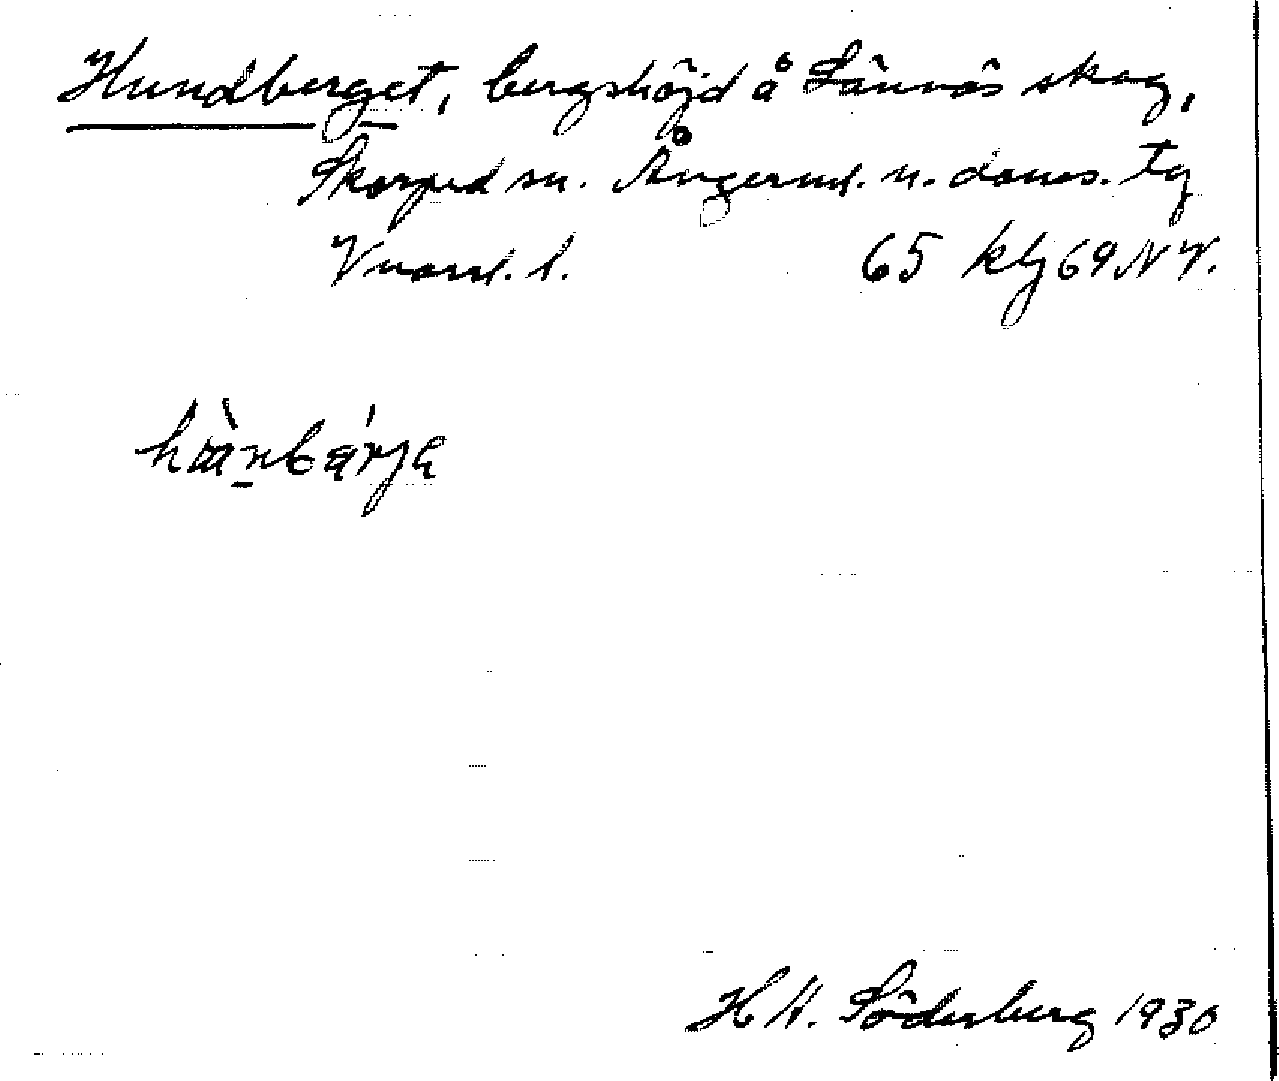 Hundberget, bergshöjd å Sännäs skog,
Skorped sn. Ångerml. n. doms. tg
V norrl. l. 65 klj 69 NV.
H W. Söderberg 1930